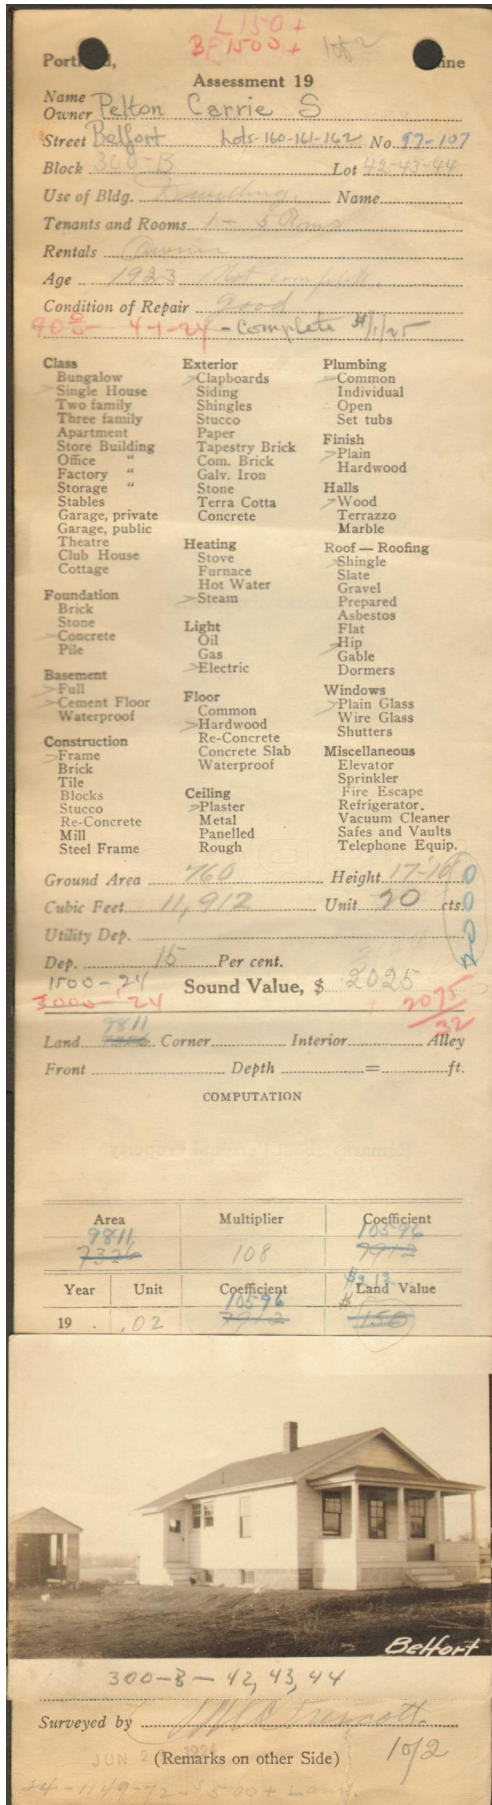 L 150 +
BE 1500 + lot 2
Portland, Maine
Assessment 19
Name
Owner Pelton Carrie S
Street Belfort Lots-160-161-162 No. 97-107
Block 300-B Lot 42-43-44
Use of Bldg. Dwelling Name
Tenants and Rooms 1 - 5 Rms
Rentals Owner
Age 1923 Not complete
Condition of Repair good
4-1-24 - Complete 4/1/25
Class
Bungalow
Single House
Two family
Three family
Apartment
Store Building
Office "
Factory "
Storage "
Stables
Garage, private
Garage, public
Theatre
Club House
Cottage
Foundation
Brick
Stone
Concrete
Pile
Basement
Full
Cement Floor
Waterproof
Construction
Frame
Brick
Tile
Blocks
Stucco
Re-Concrete
Mill
Steel Frame
Exterior
Clapboards
Siding
Shingles
Stucco
Paper
Tapestry Brick
Com. Brick
Galv. Iron
Stone
Terra Cotta
Concrete
Heating
Stove
Furnace
Hot Water
Steam
Light
Oil
Gas
Electric
Floor
Common
Hardwood
Re-Concrete
Concrete Slab
Waterproof
Ceiling
Plaster
Metal
Panelled
Rough
Plumbing
Common
Individual
Open
Set tubs
Finish
Plain
Hardwood
Halls
Wood
Terrazzo
Marble
Roof — Roofing
Shingle
Slate
Gravel
Prepared
Asbestos
Flat
Hip
Gable
Dormers
Windows
Plain Glass
Wire Glass
Shutters
Miscellaneous
Elevator
Sprinkler
Fire Escape
Refrigerator.
Vacuum Cleaner
Safes and Vaults
Telephone Equip.
Ground Area 760 Height
Cubic Feet 11,912 Unit 20 cts.
Utility Dep.
Dep. 15 Per cent.
1500-24 Sound Value, $ 2025
3000-'24 2075/32
9811
Land 7326 Corner Interior Alley
Front Depth = ft.
COMPUTATION
Area Multiplier Coefficient
9811 10596
7326 108 7912
Year Unit Coefficient Land Value
10596 $212
19 .02 7912 $150
Belfort
300-B-42,43,44
Surveyed by
JUN 1924 (Remarks on other Side) 1 of 2